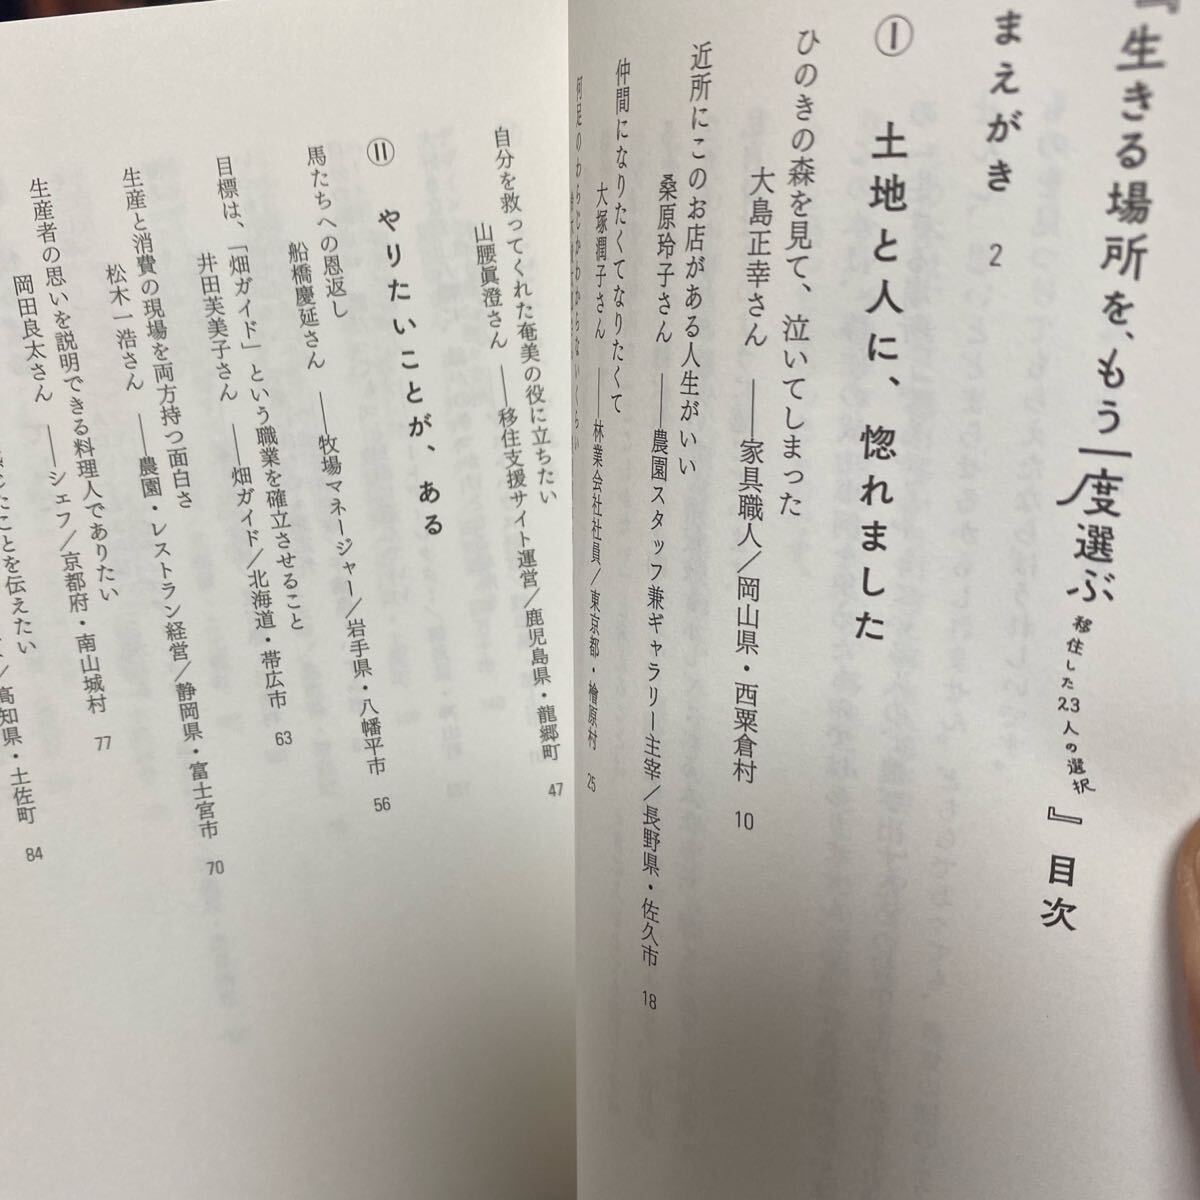 『生きる場所を、もう一度選ぶ 移住した23人の選択』 目次
まえがき 2
Ⅰ 土地と人に、惚れました
ひのきの森を見て、泣いてしまった
大島正幸さん ――家具職人／岡山県・西粟倉村 10
近所にこのお店がある人生がいい
桑原玲子さん ――農園スタッフ兼ギャラリー主宰／長野県・佐久市 18
仲間になりたくてなりたくて
大塚潤子さん ――林業会社社員／東京都・檜原村 25
何足のわらじかわからないくらい
自分を救ってくれた奄美の役に立ちたい
山腰眞澄さん ――移住支援サイト運営／鹿児島県・龍郷町 47
Ⅱ やりたいことが、ある
馬たちへの恩返し
船橋慶延さん ――牧場マネージャー／岩手県・八幡平市 56
目標は、「畑ガイド」という職業を確立させること
井田芙美子さん ――畑ガイド／北海道・帯広市 63
生産と消費の現場を両方持つ面白さ
松木一浩さん ――農園・レストラン経営／静岡県・富士宮市 70
生産者の思いを説明できる料理人でありたい
岡田良太さん ――シェフ／京都府・南山城村 77
たことを伝えたい
／高知県・土佐町 84